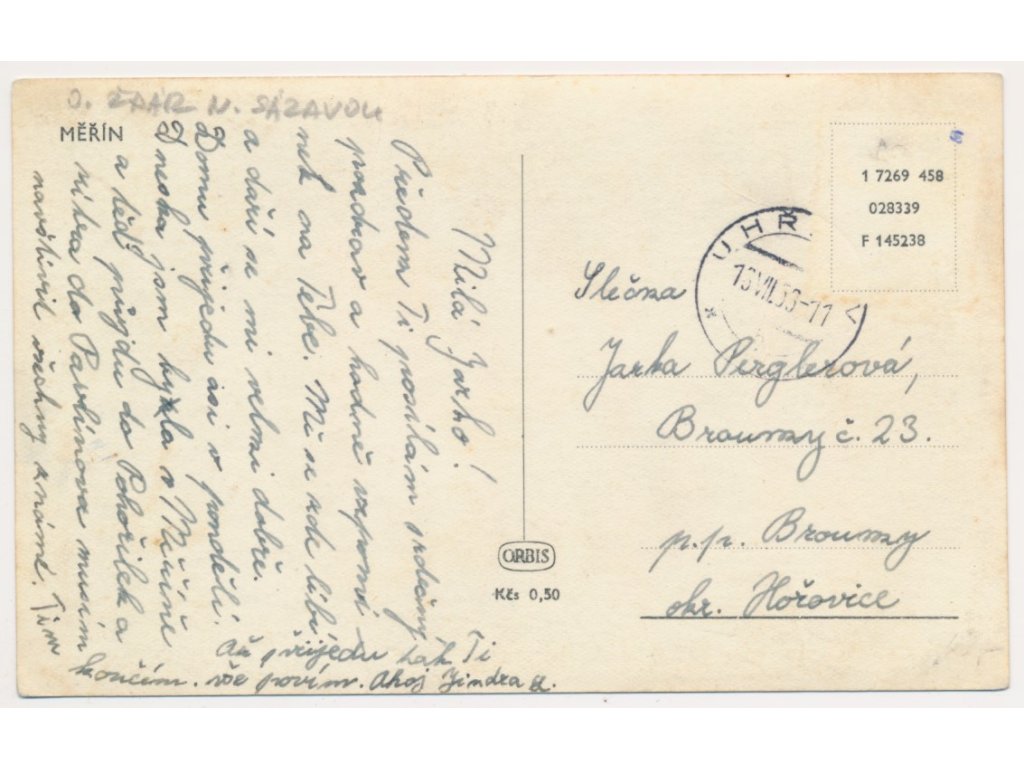 O. ŽĎÁR N. SÁZAVOU
MĚŘÍN
Milá Jarko!
Předem Ti posílám srdečný
pozdrav a hodně vzpomí-
nek na Tebe. Mě se zde líbí
a daří se mi velmi dobře.
Domu přijedu asi v pondělí.
Dneska jsem byla v Měříně
a teď půjdu do Pohořílek a
zítra do Pavlínova musím
navštívit všechny známé. Tím
končím. Až přijedu tak Ti
vše povím. Ahoj Jindra
ORBIS
Kčs 0,50
1 7269 458
028339
F 145238
UHŘ
VII
-11
Slečna
Jarka Perglerová,
Broumy č. 23.
p.p. Broumy
okr. Hořovice